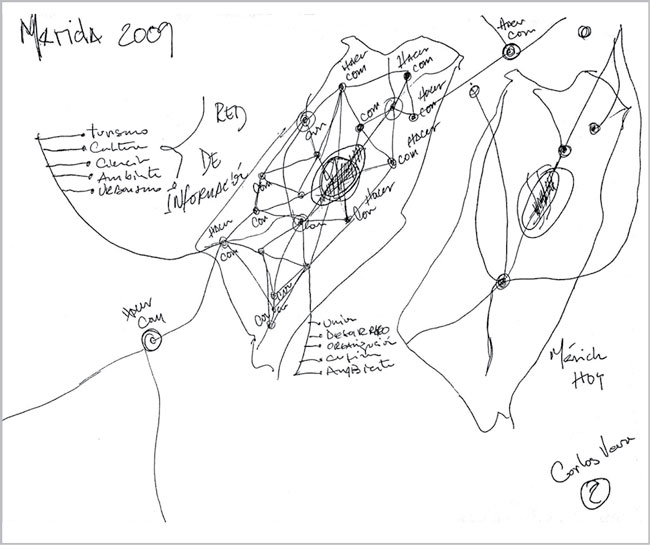 Merida 2009
RED
DE
INFORMACIÓN
turismo
Cultura
Ciencia
Ambiente
Urbanismo
Hacer
Com
Hacer
Com
Hacer
Com
Hacer
Com
Com
Hacer
Com
Hacer
Com
Com
Com
Com
Hacer
Com
Hacer
Com
ORGANIZACIÓN
Ambiente
Mérida
HOY
Carlos Vera
2